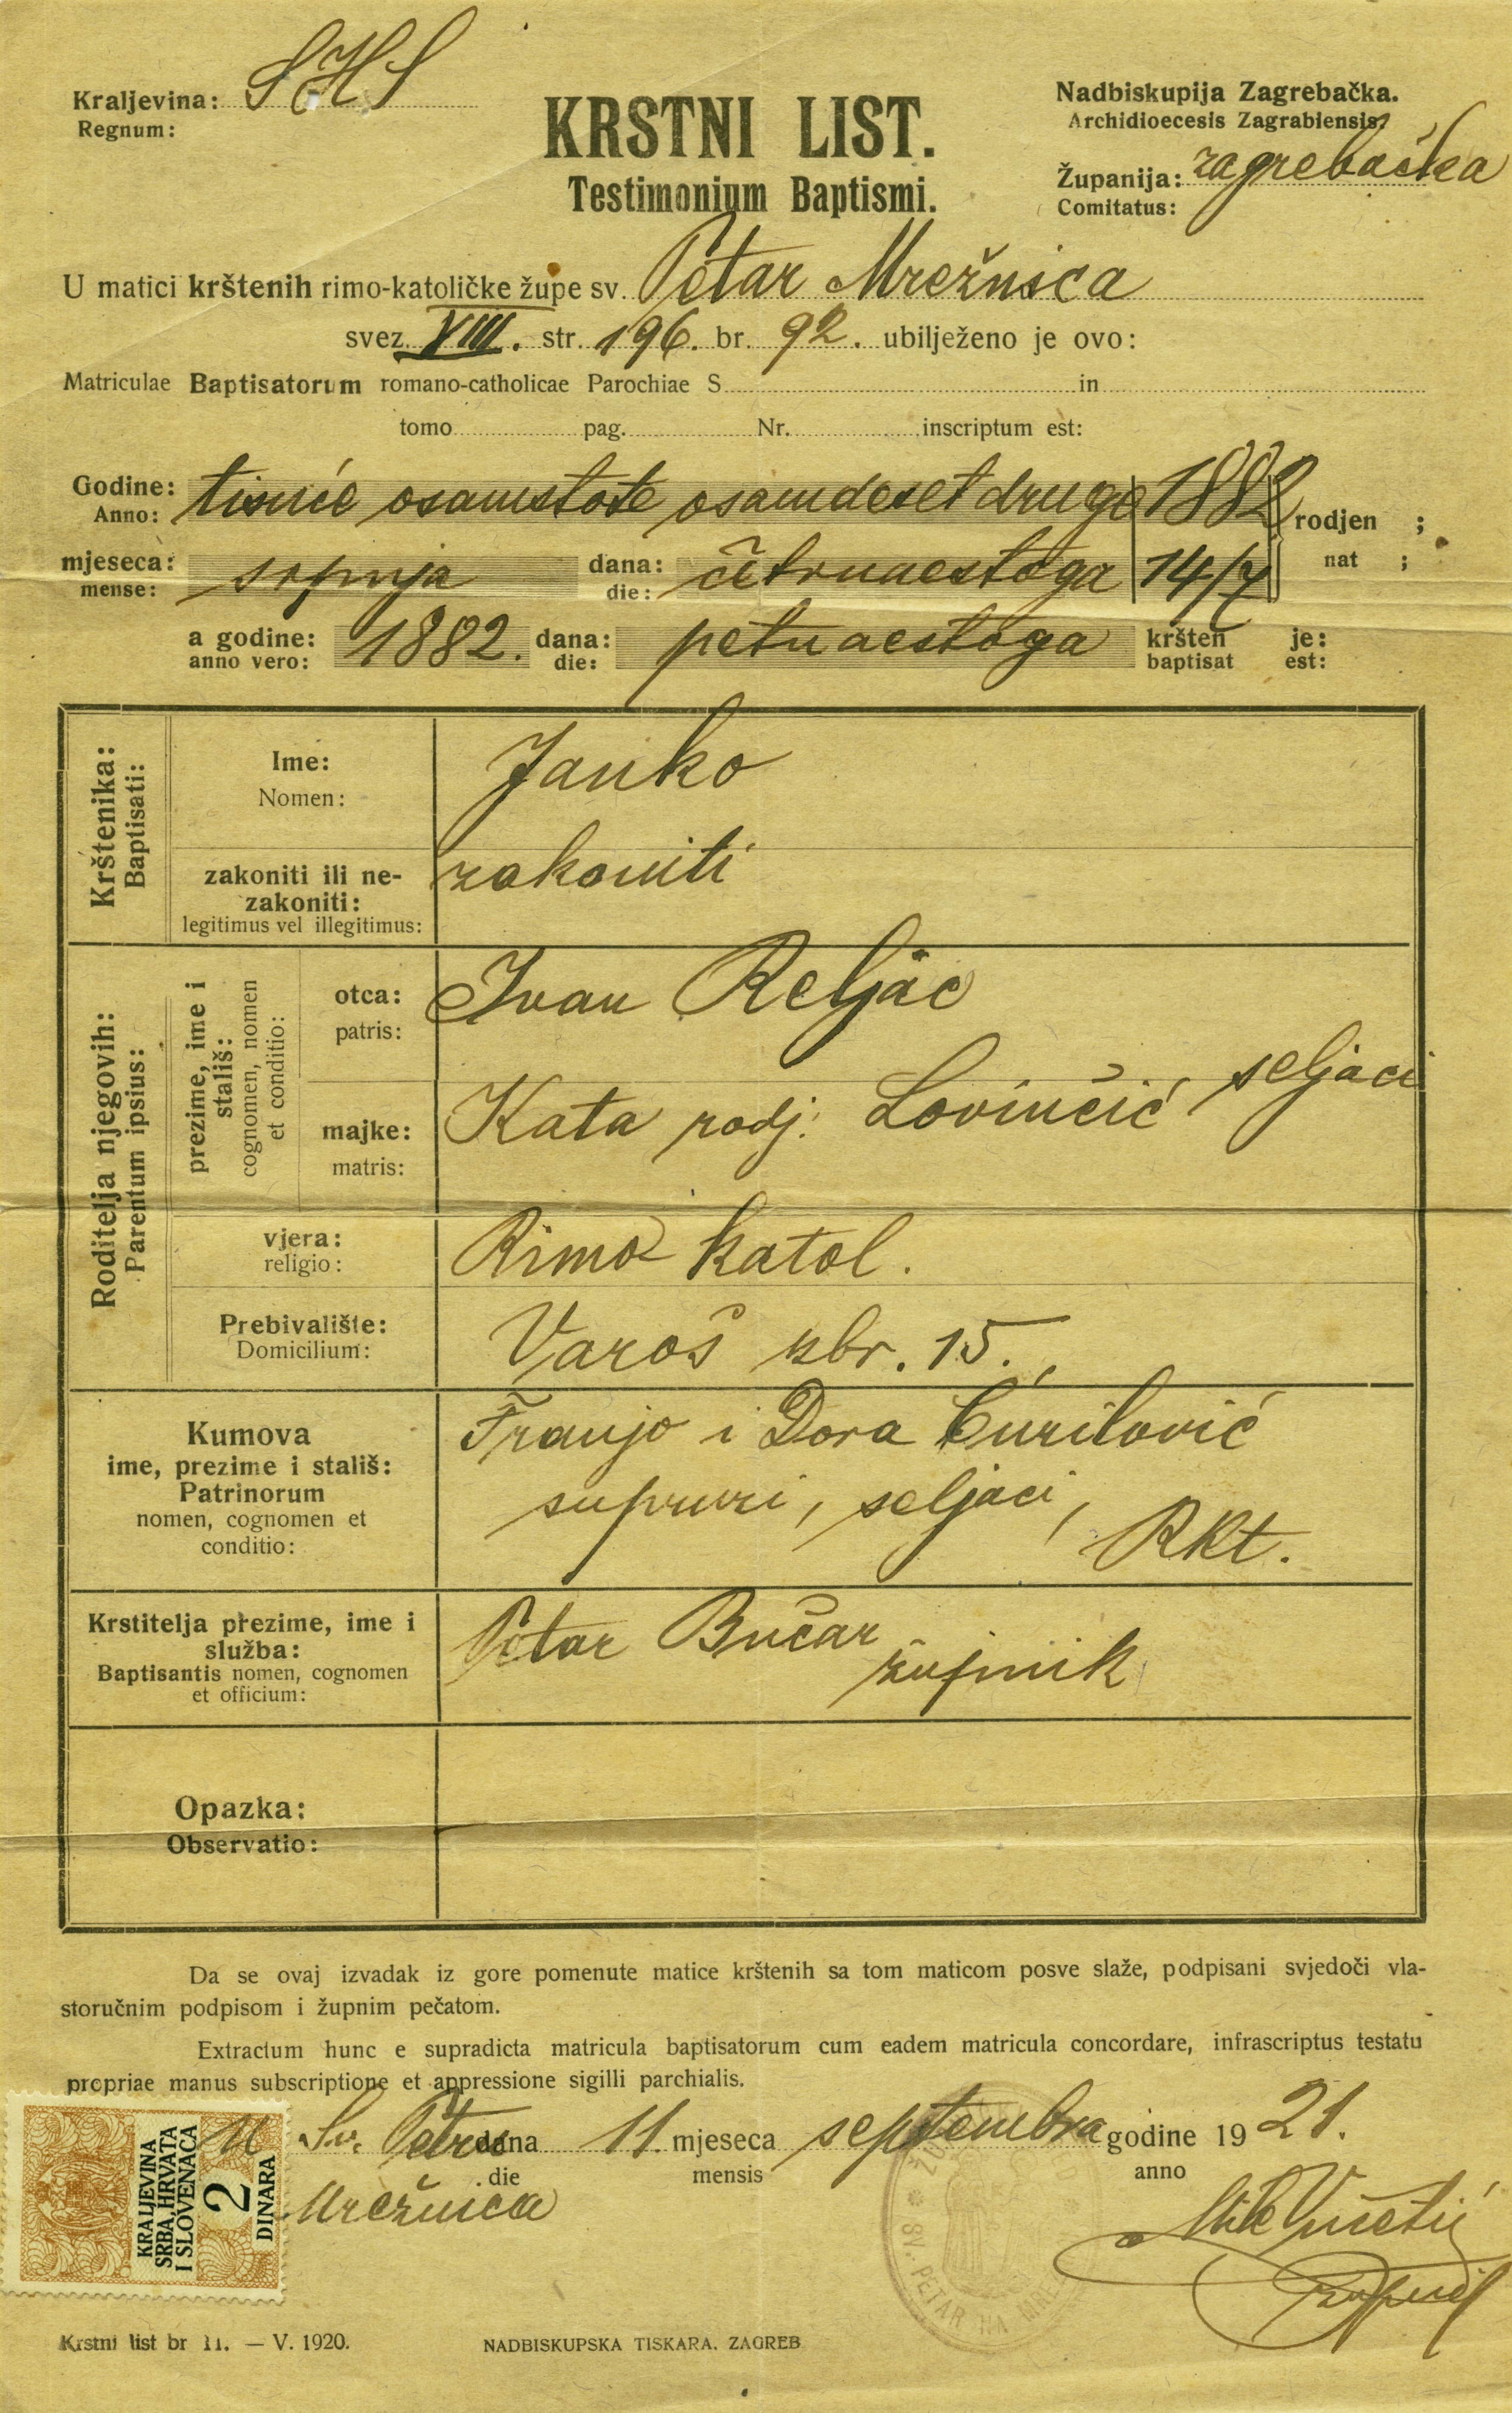 Kraljevina: SHS
Regnum:
KRSTNI LIST.
Testimonium Baptismi.
Nadbiskupija Zagrebačka.
Archidioecesis Zagrabiensis.
Županija: zagrebačka
Comitatus:
U matici krštenih rimo-katoličke župe sv. Petar Mrežnica
svez. VIII. str. 196. br. 92. ubilježeno je ovo:
Matriculae Baptisatorum romano-catholicae Parochiae S. in
tomo pag. Nr. inscriptum est:
Godine: tisuće osamstote osamdeset druge 1882 rodjen ;
Anno: nat ;
mjeseca: srpnja dana: četrnaestoga 14/7
mense: die:
a godine: 1882. dana: petnaestoga kršten je:
anno vero: die: baptisat est:
Krštenika:
Baptisati:
Ime: Janko
Nomen:
zakoniti ili ne-
zakoniti: zakoniti
legitimus vel illegitimus:
Roditelja njegovih:
Parentum ipsius:
prezime, ime i
stališ:
cognomen, nomen
et conditio:
otca: Ivan Reljac
patris:
seljaci
majke: Kata rodj. Lovinčić
matris:
vjera: Rimo katol.
religio:
Prebivalište: Varoš kbr. 15.
Domicilium:
Kumova Franjo i Dora Curilović
ime, prezime i stališ:
Patrinorum supruzi, seljaci,
nomen, cognomen et Rkt.
conditio:
Krstitelja prezime, ime i Petar Bučar
služba: župnik
Baptisantis nomen, cognomen
et officium:
Opazka:
Observatio:
Da se ovaj izvadak iz gore pomenute matice krštenih sa tom maticom posve slaže, podpisani svjedoči vla-
storučnim podpisom i župnim pečatom.
Extractum hunc e supradicta matricula baptisatorum cum eadem matricula concordare, infrascriptus testatu
propriae manus subscriptione et appressione sigilli parchialis.
U Sv. Petru dana 11. mjeseca septembra godine 1921.
die mensis anno
Mrežnica
KRALJEVINA
SRBA, HRVATA
I SLOVENACA
2
DINARA
SV. PETAR NA
župnik
Krstni list br 11. — V. 1920.
NADBISKUPSKA TISKARA. ZAGREB